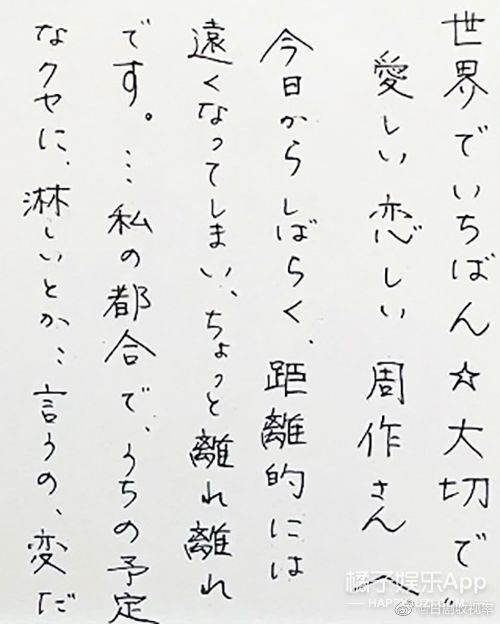 世界でいちばん☆大切で、
愛しい恋しい周作さん
今日からしばらく、距離的には
遠くなってしまい、ちょっと離れ離れ
です。…私の都合で、うちの予定
なクセに、淋しいとか…言うの、変だ
橘子娱乐App
HAPPYJUZI.COM